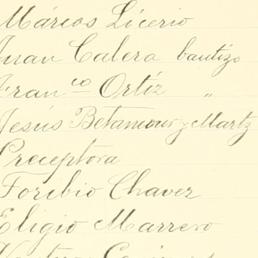 Márcos Licerio
Juan Calera bautizo
Franco Ortíz "
Jesús Betancour y Martz
Preceptora
Toribio Chavez
Eligio Marrero